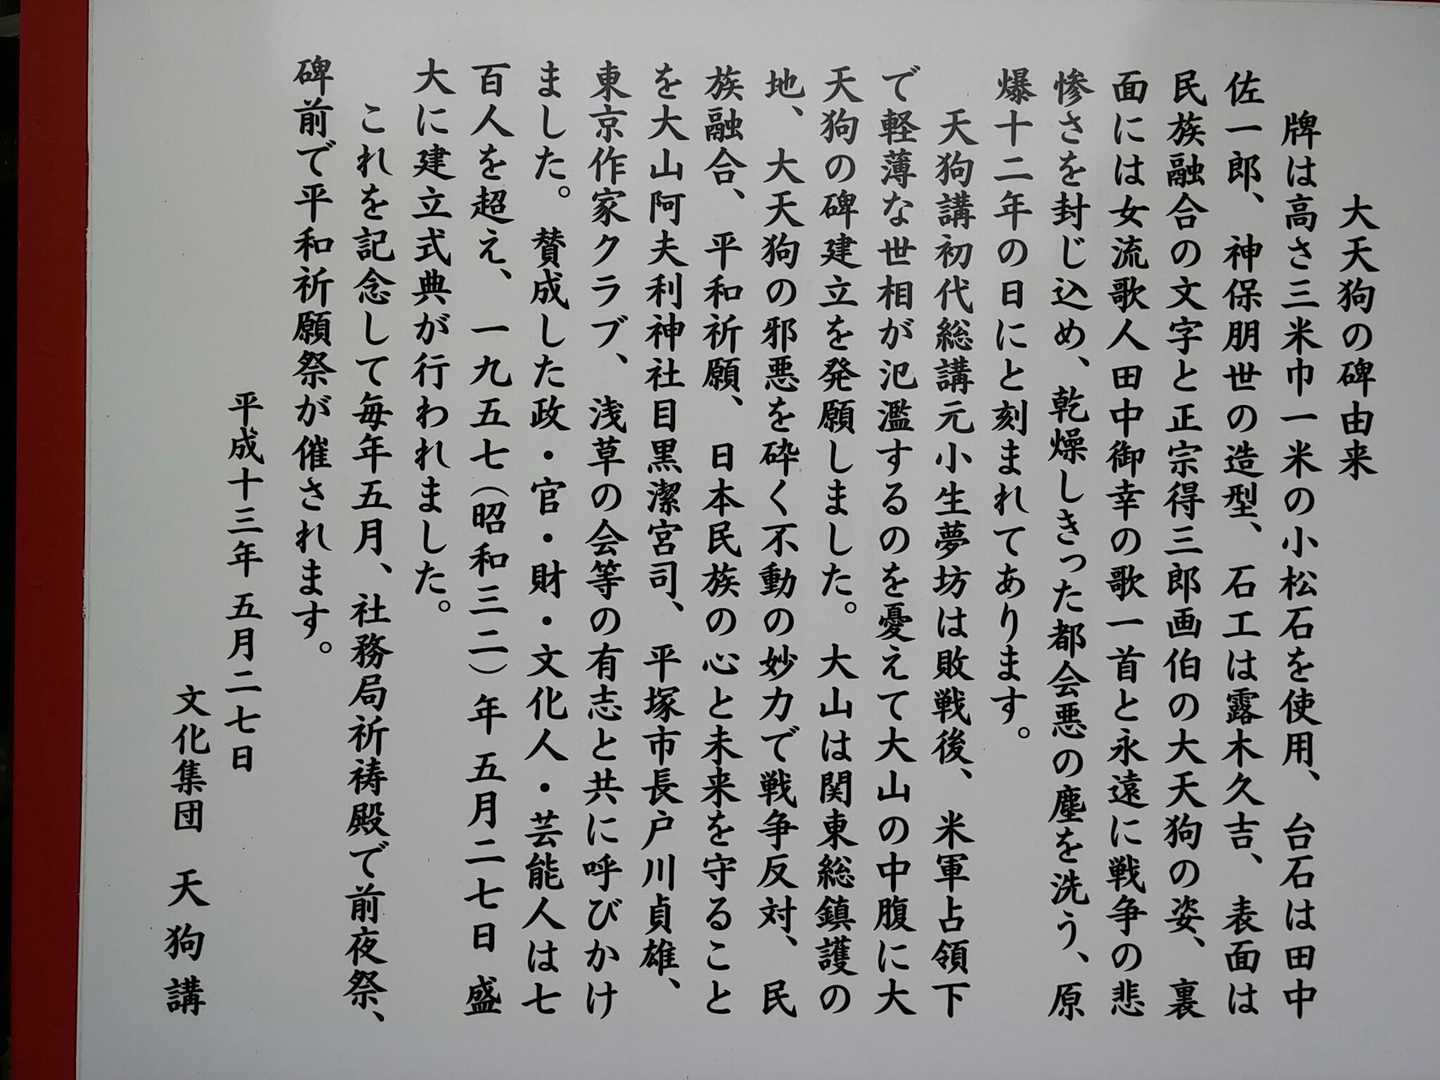 大天狗の碑由来
牌は高さ三米巾一米の小松石を使用、台石は田中
佐一郎、神保朋世の造型、石工は露木久吉、表面は
民族融合の文字と正宗得三郎画伯の大天狗の姿、裏
面には女流歌人田中御幸の歌一首と永遠に戦争の悲
惨さを封じ込め、乾燥しきった都会悪の塵を洗う、原
爆十二年の日にと刻まれてあります。
天狗講初代総講元小生夢坊は敗戦後、米軍占領下
で軽薄な世相が氾濫するのを憂えて大山の中腹に大
天狗の碑建立を発願しました。大山は関東総鎮護の
地、大天狗の邪悪を砕く不動の妙力で戦争反対、民
族融合、平和祈願、日本民族の心と未来を守ること
を大山阿夫利神社目黒潔宮司、平塚市長戸川貞雄、
東京作家クラブ、浅草の会等の有志と共に呼びかけ
ました。賛成した政・官・財・文化人・芸能人は七
百人を超え、一九五七(昭和三二)年五月二七日盛
大に建立式典が行われました。
これを記念して毎年五月、社務局祈祷殿で前夜祭、
碑前で平和祈願祭が催されます。
平成十三年五月二七日
文化集団 天狗講